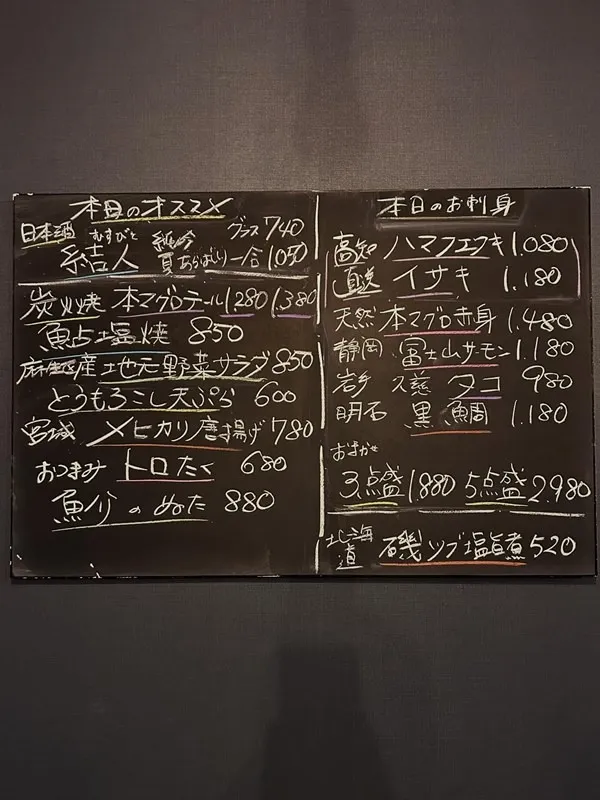 本日のオススメ
日本酒 むすびと 結人 純吟 夏あらばしり グラス 740
一合 1050
炭火焼 本マグロテール 1280 1380
魚占塩焼 850
麻生区産 地元野菜サラダ 850
とうもろこし天ぷら 600
宮城 メヒカリ唐揚げ 780
おつまみ トロたく 680
魚介のぬた 880
本日のお刺身
高知 ハマフエフキ 1.080
直送 イサキ 1.180
天然 本マグロ赤身 1.480
静岡 富士山サーモン 1.180
岩手 久慈 タコ 980
明石 黒鯛 1.180
おまかせ
3点盛 1880 5点盛 2980
北海道 磯ツブ塩旨煮 520